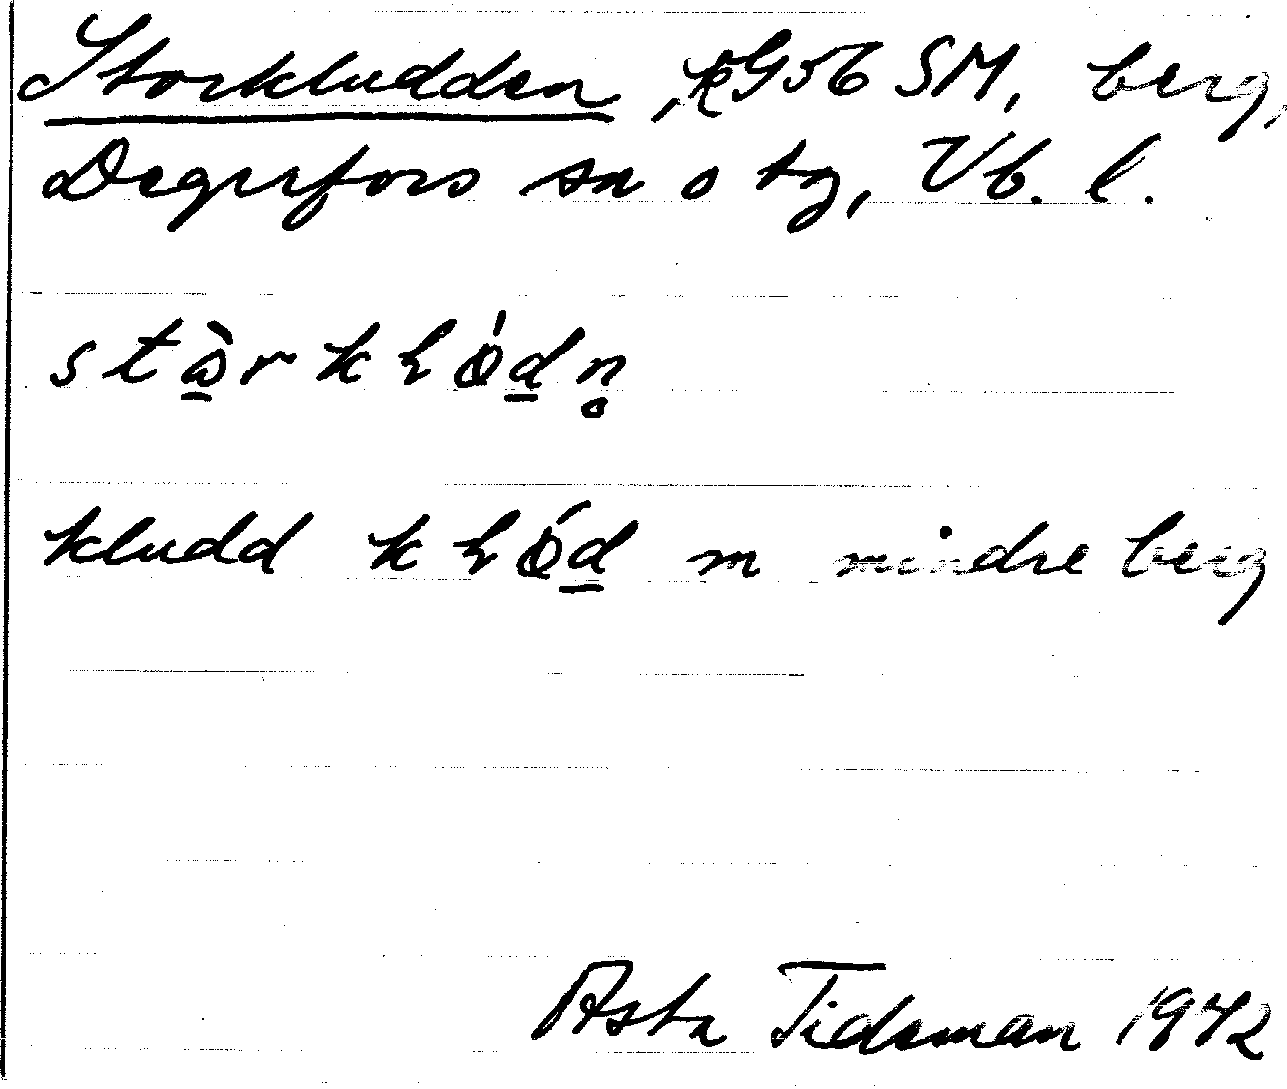 Storkludden, kG 56 SM, berg,
Degerfors sn o tg, Vb. l.
stὼ̲rkłǿd̲n̥
kludd kłǿd̲ m mindre berg
Asta Tideman 1942